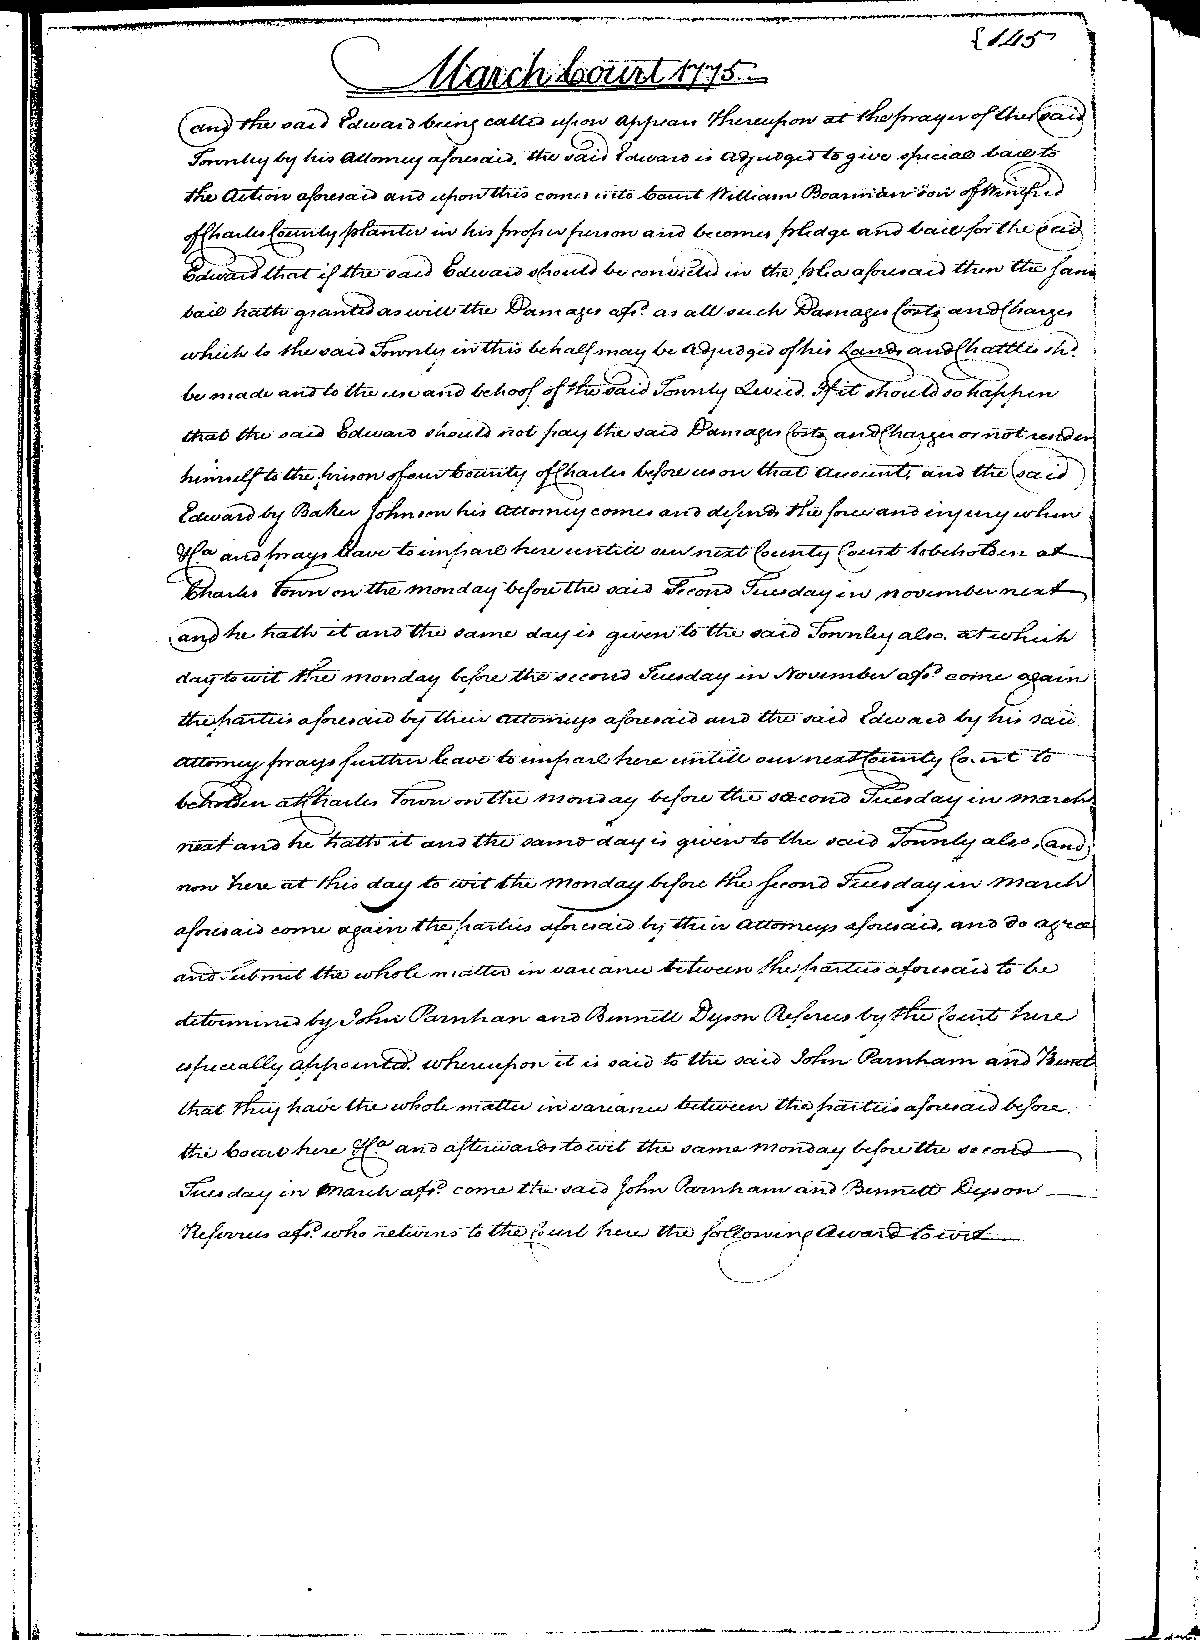 {145
March Court 1775
and the said Edward being called upon appear Thereupon at the prayer of the said
Townley by his Attorney aforesaid, the said Edward is Adjudged to give special bail to
the Action aforesaid and upon this comes into Court William Boarman son of Winifred
of Charles County planter in his proper person and becomes pledge and bail for the said
Edward that if the said Edward should be convicted in the plea aforesaid then the same
bail hath granted as will the Damages afsd. as all such Damages Costs and Charges
which to the said Townly in this behalf may be Adjudged of his Lands and Chattles shd.
be made and to the use and behoof of the said Townly Levied. If it should so happen
that the said Edward should not pay the said Damages Costs and Charges or not render
himself to the prison of our County of Charles before us on that Account, and the said
Edward by Baker Johnson his Attorney comes and defends the force and injury when
&Ca and prays leave to imparl here untill our next County Court to be holden at
Charles Town on the monday before the said Second Tuesday in november next
and he hath it and the same day is given to the said Townley also. at which
day to wit the monday before the second Tuesday in November afsd. come again
the parties aforesaid by their Attorneys aforesaid and the said Edward by his said
Attorney prays further leave to imparl here untill our next County Court to
be holden at Charles Town on the monday before the second Tuesday in march
next and he hath it and the same day is given to the said Townly also, and
now here at this day to wit the Monday before the second Tuesday in March
aforesaid come again the parties aforesaid by their Attorneys aforesaid, and do agree
and submit the whole matter in variance between the parties aforesaid to be
determined by John Parnhan and Bennett Dyson Referees by the Court here
especially appointed. whereupon it is said to the said John Parnham and Bennet
that they have the whole matter in variance between the parties aforesaid before
the Court here &Ca and afterwards to wit the same Monday before the second
Tuesday in March afsd. come the said John Parnham and Bennett Dyson
Referrees afsd. who returns to the Court here the following Award to wit